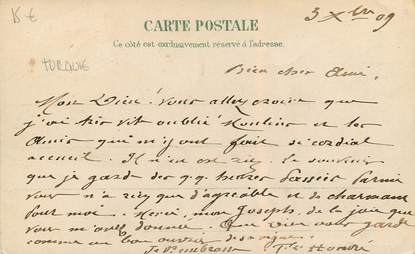 15 €
TURQUIE
CARTE POSTALE
Ce côté est exclusivement réservé à l'adresse.
3 Xbre 09
Bien cher Ami,
Mon Dieu! Vous allez croire que
j'ai très vit oublié Moulins et les
Amis qui m'y ont fait si cordial
accueil. Il n'en est rien. Le souvenir
que je gard des q.q. heures passées parmi
vous n'a rien que d'agréable et de charmant
pour moi. Merci, mon Joseph, de la joie que
vous m'avez donnée. Que Dieu vous garde
comme un bon ouvrier de sa vigne!
Je vous embrasse